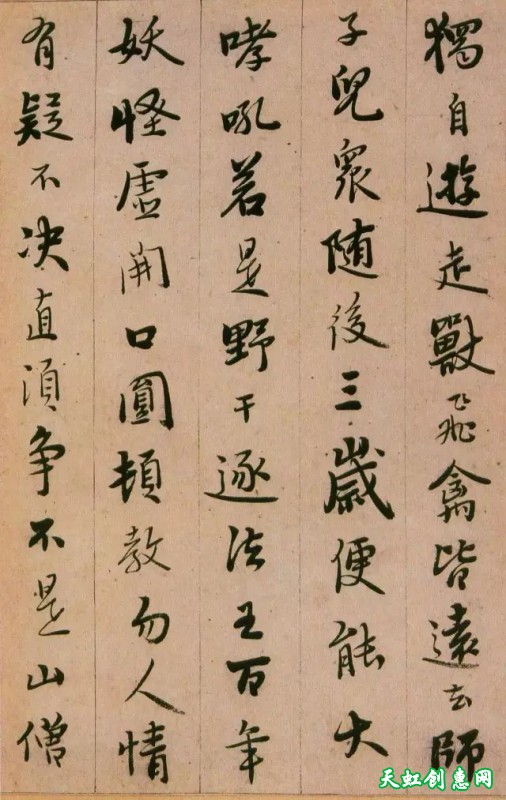 獨自遊走獸飛禽皆遠去師
子兒衆随後三歳便能大
哮吼若是野干逐法王百年
妖怪虚開口圓頓教勿人情
有疑不决直須争不是山僧
天虹创惠网